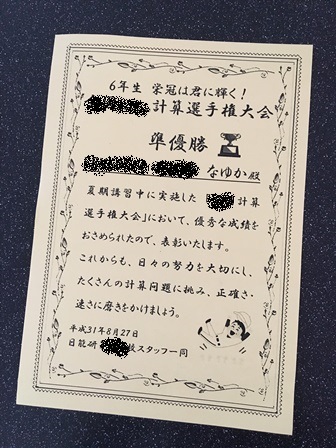 6年生 栄冠は君に輝く!
計算選手権大会
準優勝
なゆか殿
夏期講習中に実施した 計算
選手権大会」において、優秀な成績を
おさめられたので、表彰いたします。
これからも、日々の努力を大切にし、
たくさんの計算問題に挑み、正確さ・
速さに磨きをかけましょう。
平成31年8月27日
日能研 校スタッフ一同